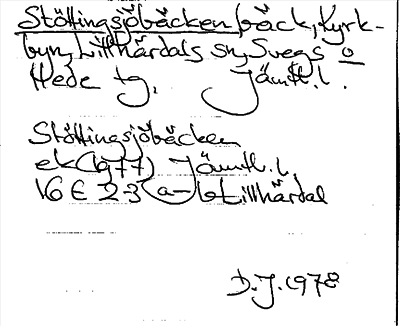 Stöttingsjöbäcken bäck, Kyrk-
byn, Lillhärdals sn, Svegs o
Hede tg, Jämtl. l.
Stöttingsjöbäcken
ek (1977) Jämtl. l.
16 E 2-3 a-b Lillhärdal
D.J. 1978